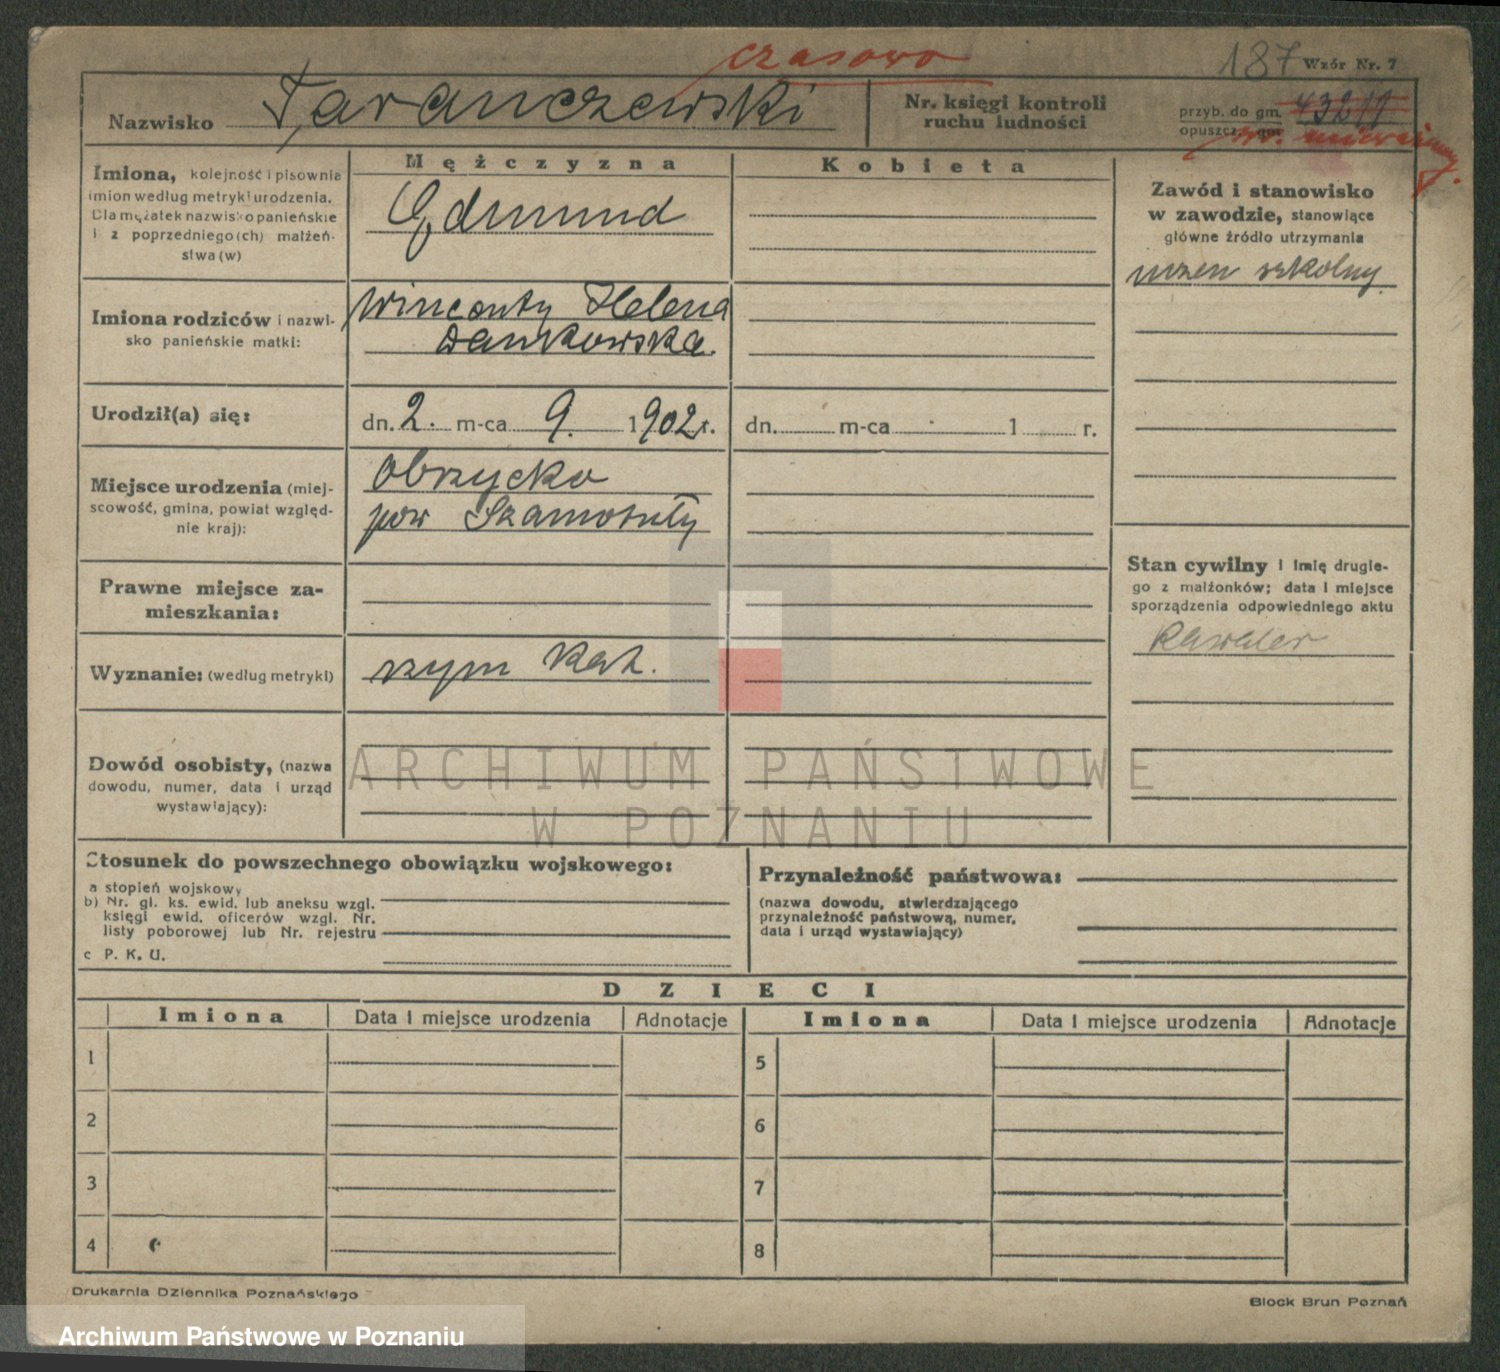 czasowo
187 Wzór Nr. 7
Nazwisko Taranczewski
Nr. księgi kontroli
ruchu ludności
przyb. do gm. 432/1
opuszcz. gm.
Mężczyzna
Kobieta
Imiona, kolejność i pisownia
imion według metryki urodzenia.
Dla mężatek nazwisko panieńskie
i z poprzedniego(ch) małżeń-
stwa(w)
Edmund
Zawód i stanowisko
w zawodzie, stanowiące
główne źródło utrzymania
uczen szkolny
Imiona rodziców i nazwi-
sko panieńskie matki:
Wincenty Helena
Dankowska.
Urodził(a) się:
dn. 2. m-ca 9. 1902 r.
dn. m-ca 1 r.
Miejsce urodzenia (miej-
scowość, gmina, powiat wzgléd-
nie kraj):
Obrzycko
pow Szamotuły
Prawne miejsce za-
mieszkania:
Stan cywilny i imię drugie-
go z małżonków; data i miejsce
sporządzenia odpowiedniego aktu
Kawaler
Wyznanie: (według metryki)
rzym kat.
Dowód osobisty, (nazwa
dowodu, numer, data i urząd
wystawiający):
ARCHIWUM PAŃSTWOWE
W POZNANIU
Stosunek do powszechnego obowiązku wojskowego:
a stopień wojskowy
b) Nr. gł. ks. ewid. lub aneksu wzgl.
księgi ewid. oficerów wzgl. Nr.
listy poborowej lub Nr. rejestru
c P. K. U.
Przynależność państwowa:
(nazwa dowodu, stwierdzającego
przynależność państwową, numer,
data i urząd wystawiający)
DZIECI
Imiona Data i miejsce urodzenia Adnotacje Imiona Data i miejsce urodzenia Adnotacje
1 5
2 6
3 7
4 8
Drukarnia Dziennika Poznańskiego
Block Brun Poznań
Archiwum Państwowe w Poznaniu